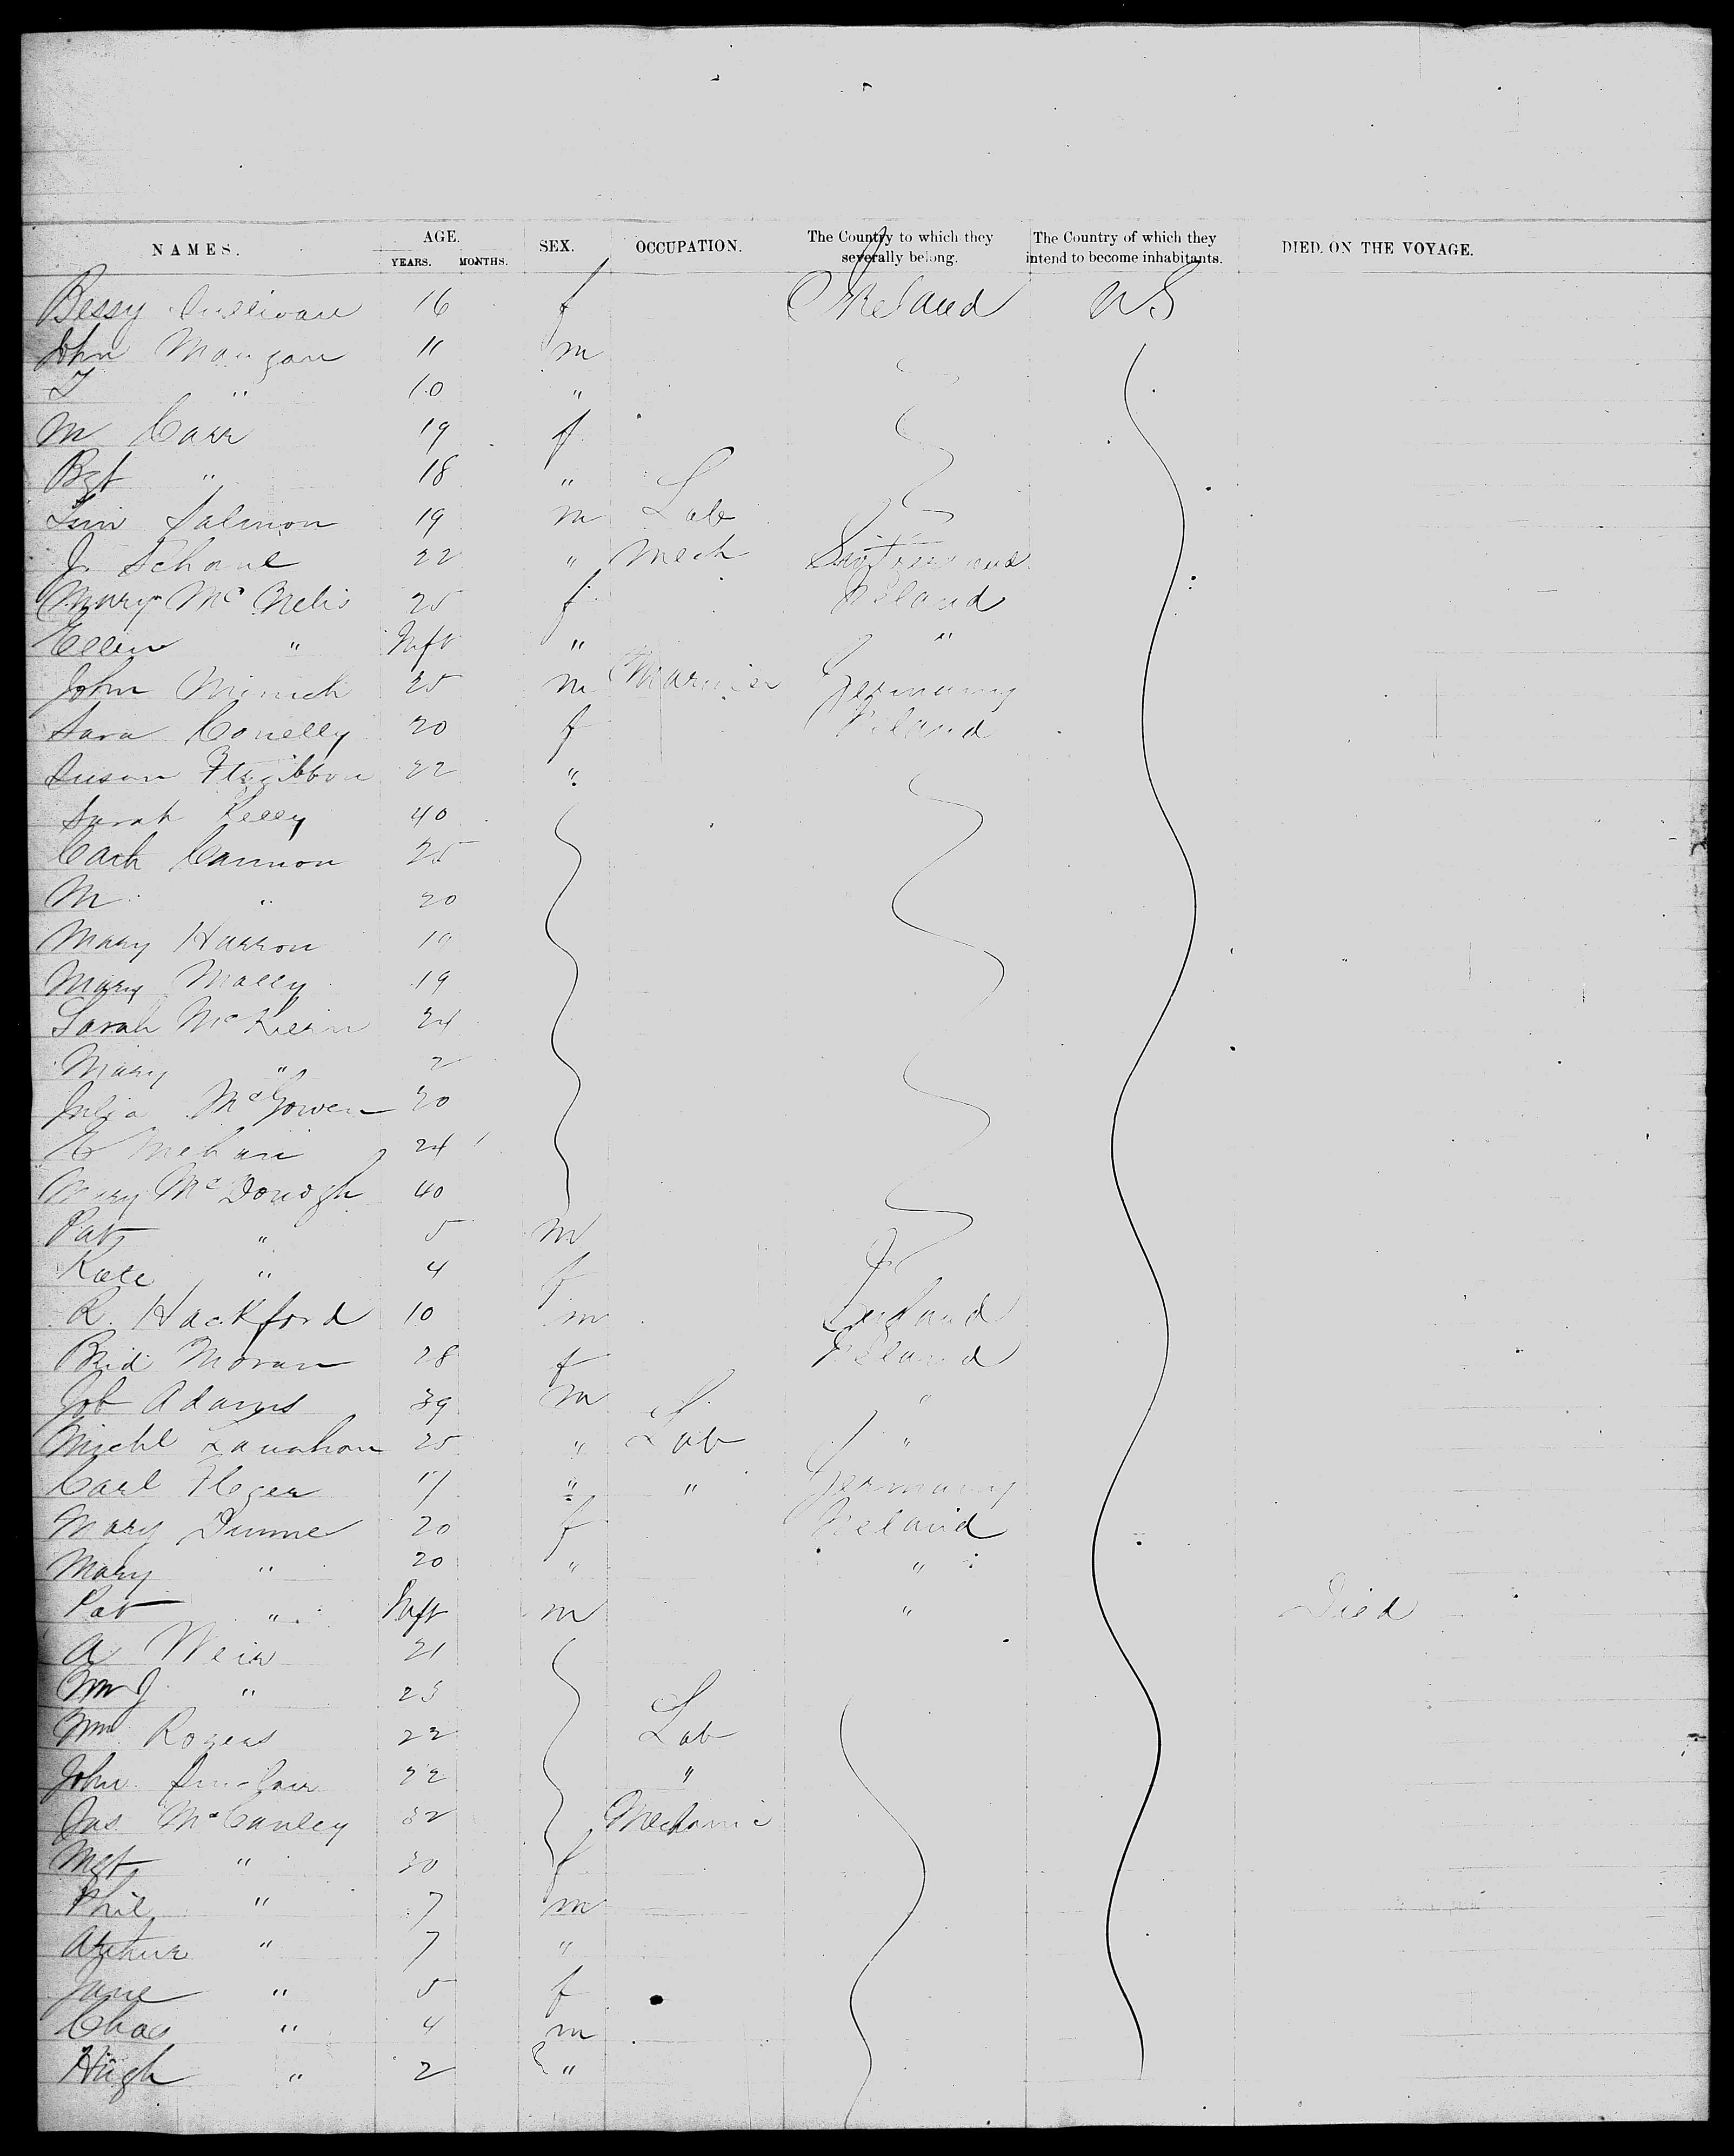 NAMES. AGE. YEARS. MONTHS. SEX. OCCUPATION. The Country to which they severally belong. The Country of which they intend to become inhabitants. DIED ON THE VOYAGE.
Bessy Sullivan 16 f Ireland US
John Mangan 11 m
T " 10 "
M Carr 19 f
Bgt " 18 "
Tim Salmon 19 m Lab
J. 22 " Mech Switzerland
Mary Mc Nelis 25 f Ireland
Ellen " Inft " "
John 25 m Germany
Sara Conelly 20 f Ireland
Susan Fitzgibbon 22 "
Sarah Kelly 40
Cath Cannon 25
M " 20
Mary Harron
Mary Mally 19
Sarah 24
Mary " 2
Julia McGowen 20
Mehan 24
Mary McDonogh 40
Pat " 5 m
Kate " 4 f
R. Hackford 10 m England
Brid Moran 28 f Ireland
Job Adams 39 m "
Michl Lanahan 25 " Lab "
Carl " " Germany
Mary Dunne 20 f Ireland
Mary " 20 " "
Pat " Inft m " Died
A Weir 21
Wm J " 23
Wm Rogers 22 Lab
John Sinclair 22 "
Jas McCauley 32 Mechanic
Mgt " 30 f
Phil " 7 m
Arthur " 7 "
Jane " 5 f
Chas " 4 m
Hugh " 2 "